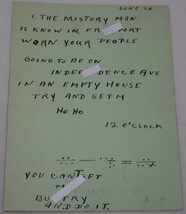 JUNE 26
I THE MISTORY MAN
IS KNOW IN FR PORT
WORN YOUR PEOPLE
GOING TO BE ON
INDEPENDENCE AVE
IN AN EMPTY HOUSE
TRY AND GET M
HO HO
12 O'CLOCK
YOU CANT GET
M
BUT TRY
AND DO IT.